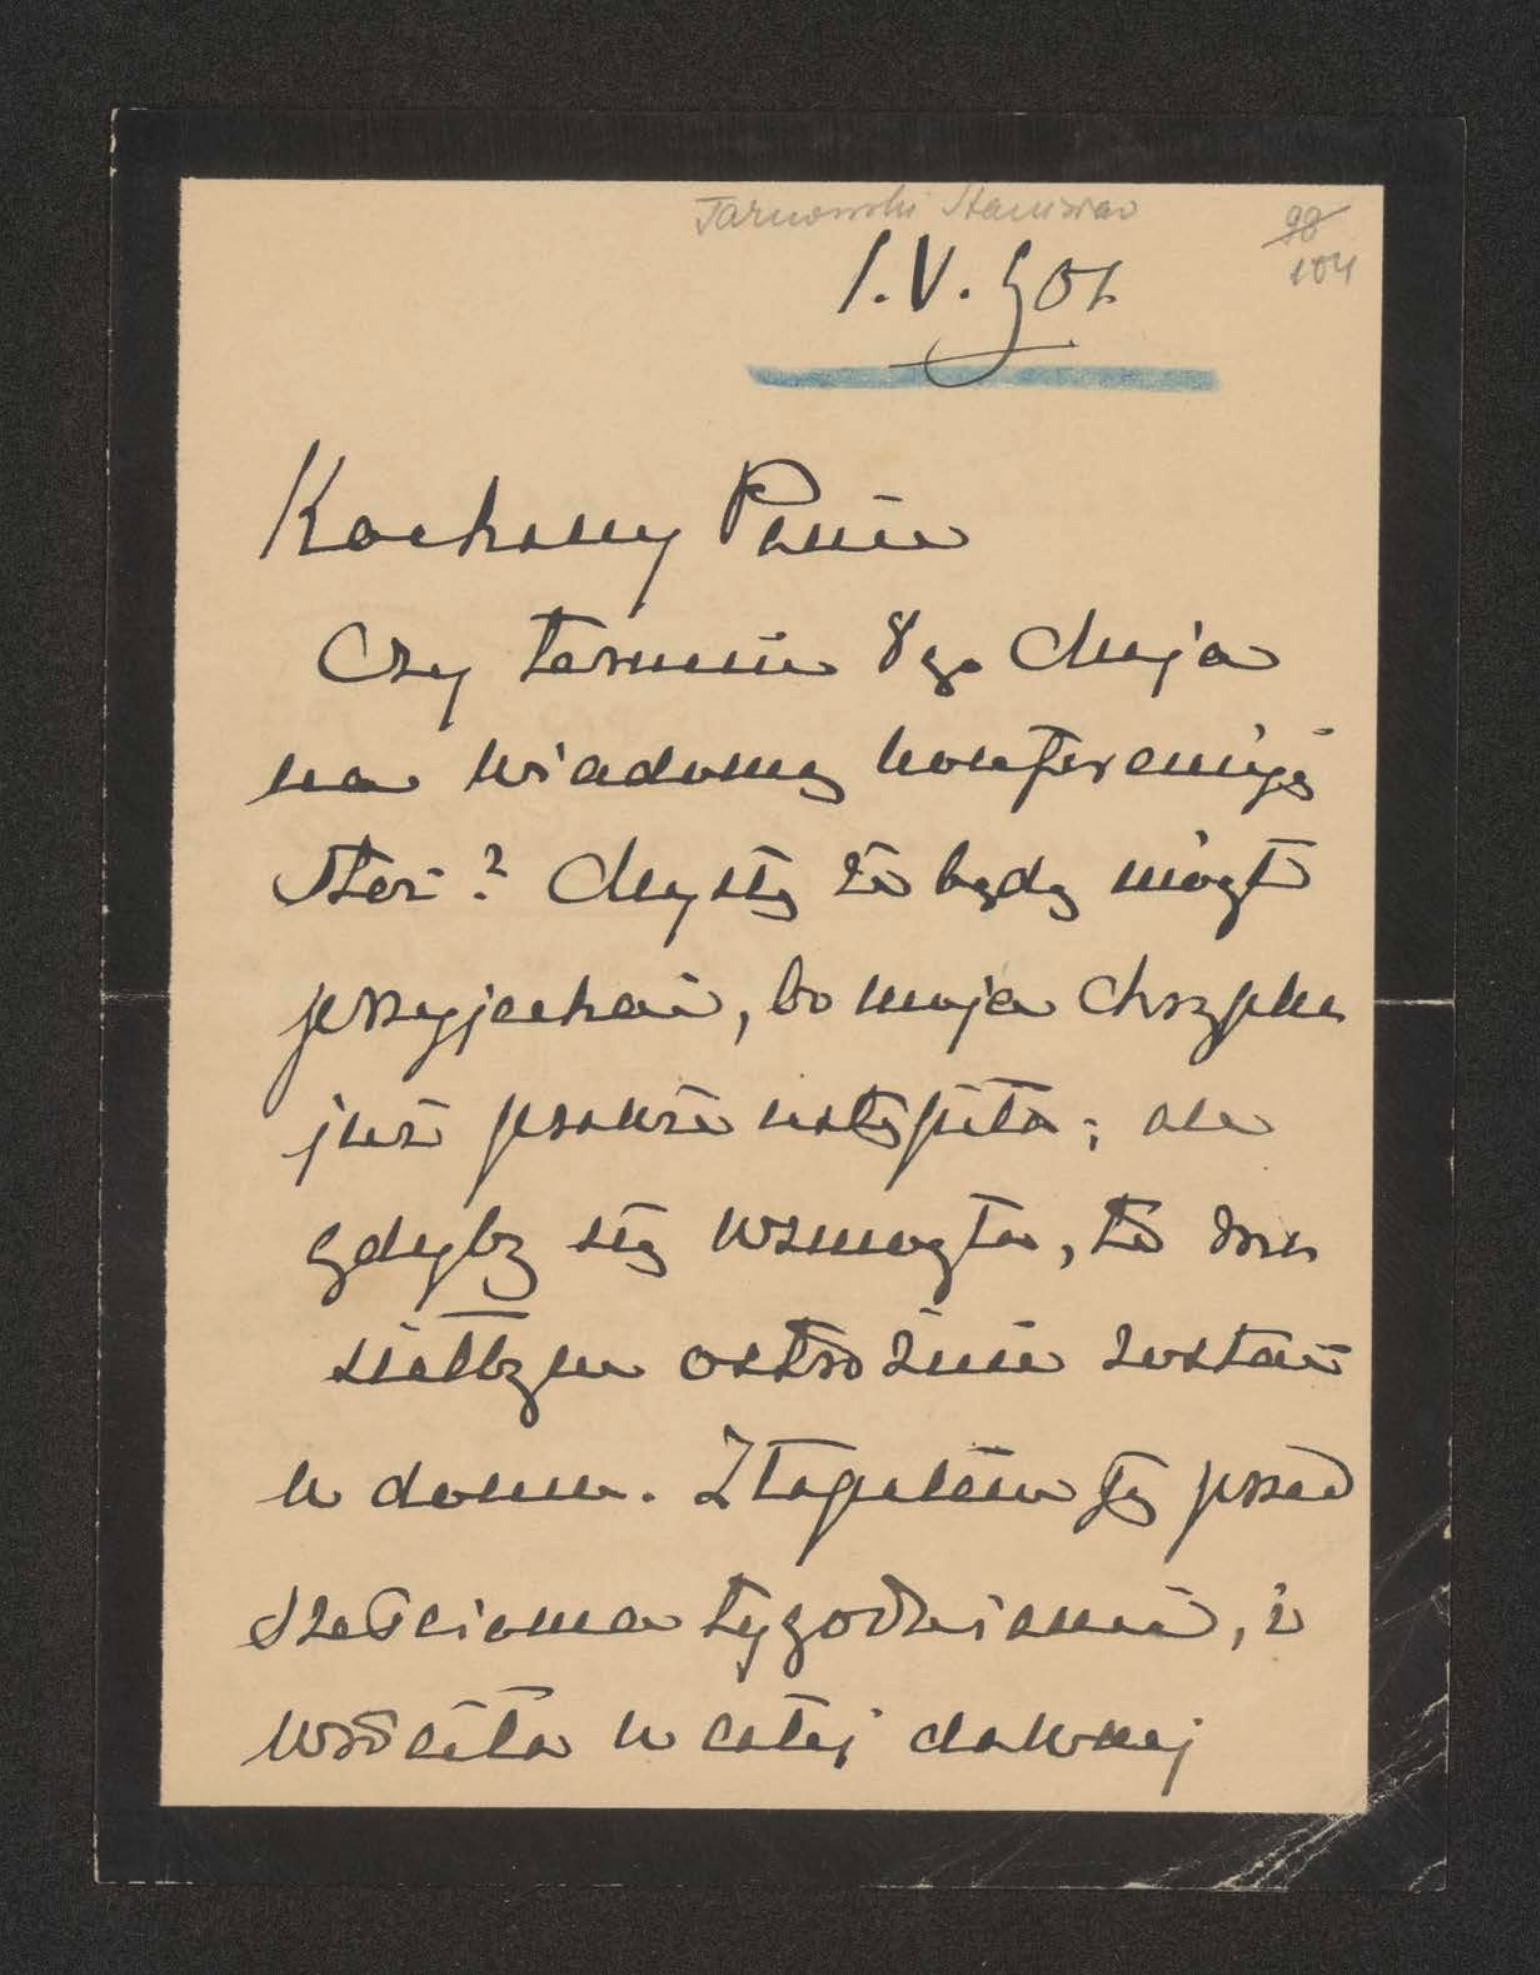 Tarnowski Stanisław
98
104
1.V.901.
Kochany Panie
Czy termin 8go Maja
na wiadomą konferencyę
stoi? Myslę że będę mógł
przyjechać, bo moja chrzypka
już prawie ustąpiła; ale
gdyby się wzmogła, to
ostrożnie zostać
w domu. Złapałem ją przed
sześcioma tygodniami, i
wróciła w całej dawnej